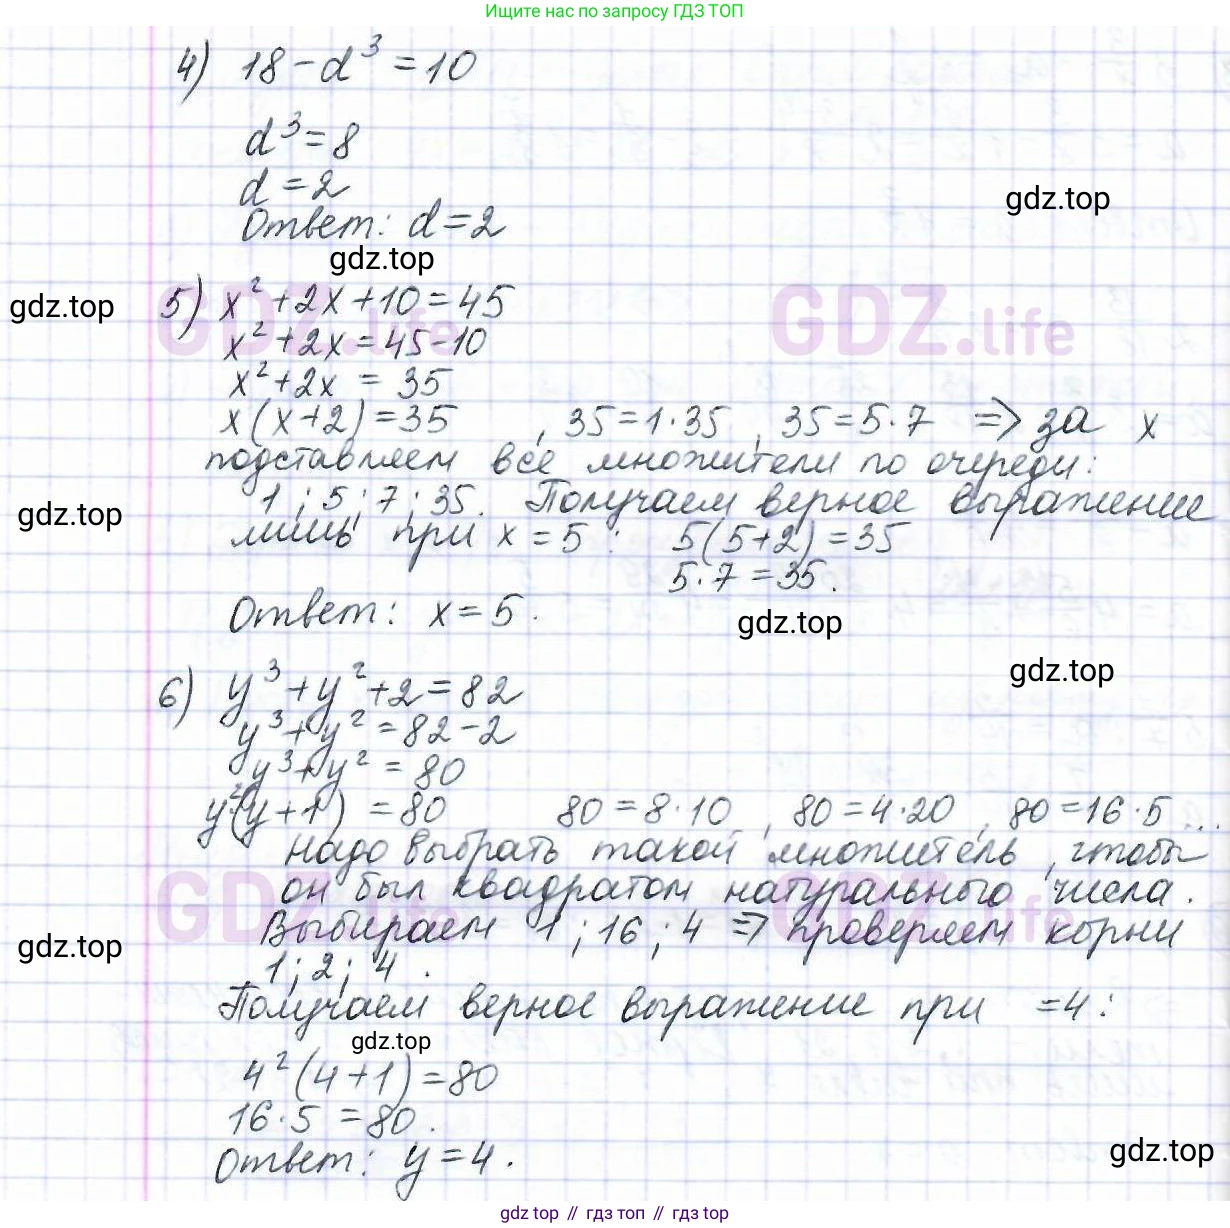 Ищите нас по запросу ГДЗ ТОП
4) 18 - d³ = 10
d³ = 8
d = 2
gdz.top
Ответ: d = 2
gdz.top
gdz.top
5) x² + 2x + 10 = 45
GDZ.life GDZ.life
x² + 2x = 45 - 10
x² + 2x = 35
x(x+2) = 35 , 35 = 1·35 , 35 = 5·7 => за x
подставляем все множители по очереди:
1 ; 5 ; 7 ; 35. Получаем верное выражение
gdz.top
лишь при x = 5 : 5(5+2) = 35
5·7 = 35.
Ответ: x = 5.
gdz.top
gdz.top
6) y³ + y² + 2 = 82
y³ + y² = 82 - 2
y³ + y² = 80
y²(y+1) = 80 80 = 8·10 , 80 = 4·20 , 80 = 16·5 ...
надо выбрать такой множитель, чтобы
он был квадратом натурального числа.
GDZ.life GDZ.life
Выбираем 1 ; 16 ; 4 => проверяем корни
gdz.top
1 ; 2 ; 4 .
Получаем верное выражение при = 4 :
gdz.top
4²(4+1) = 80
16·5 = 80.
gdz.top
Ответ: y = 4.
gdz.top // гдз топ // gdz.top